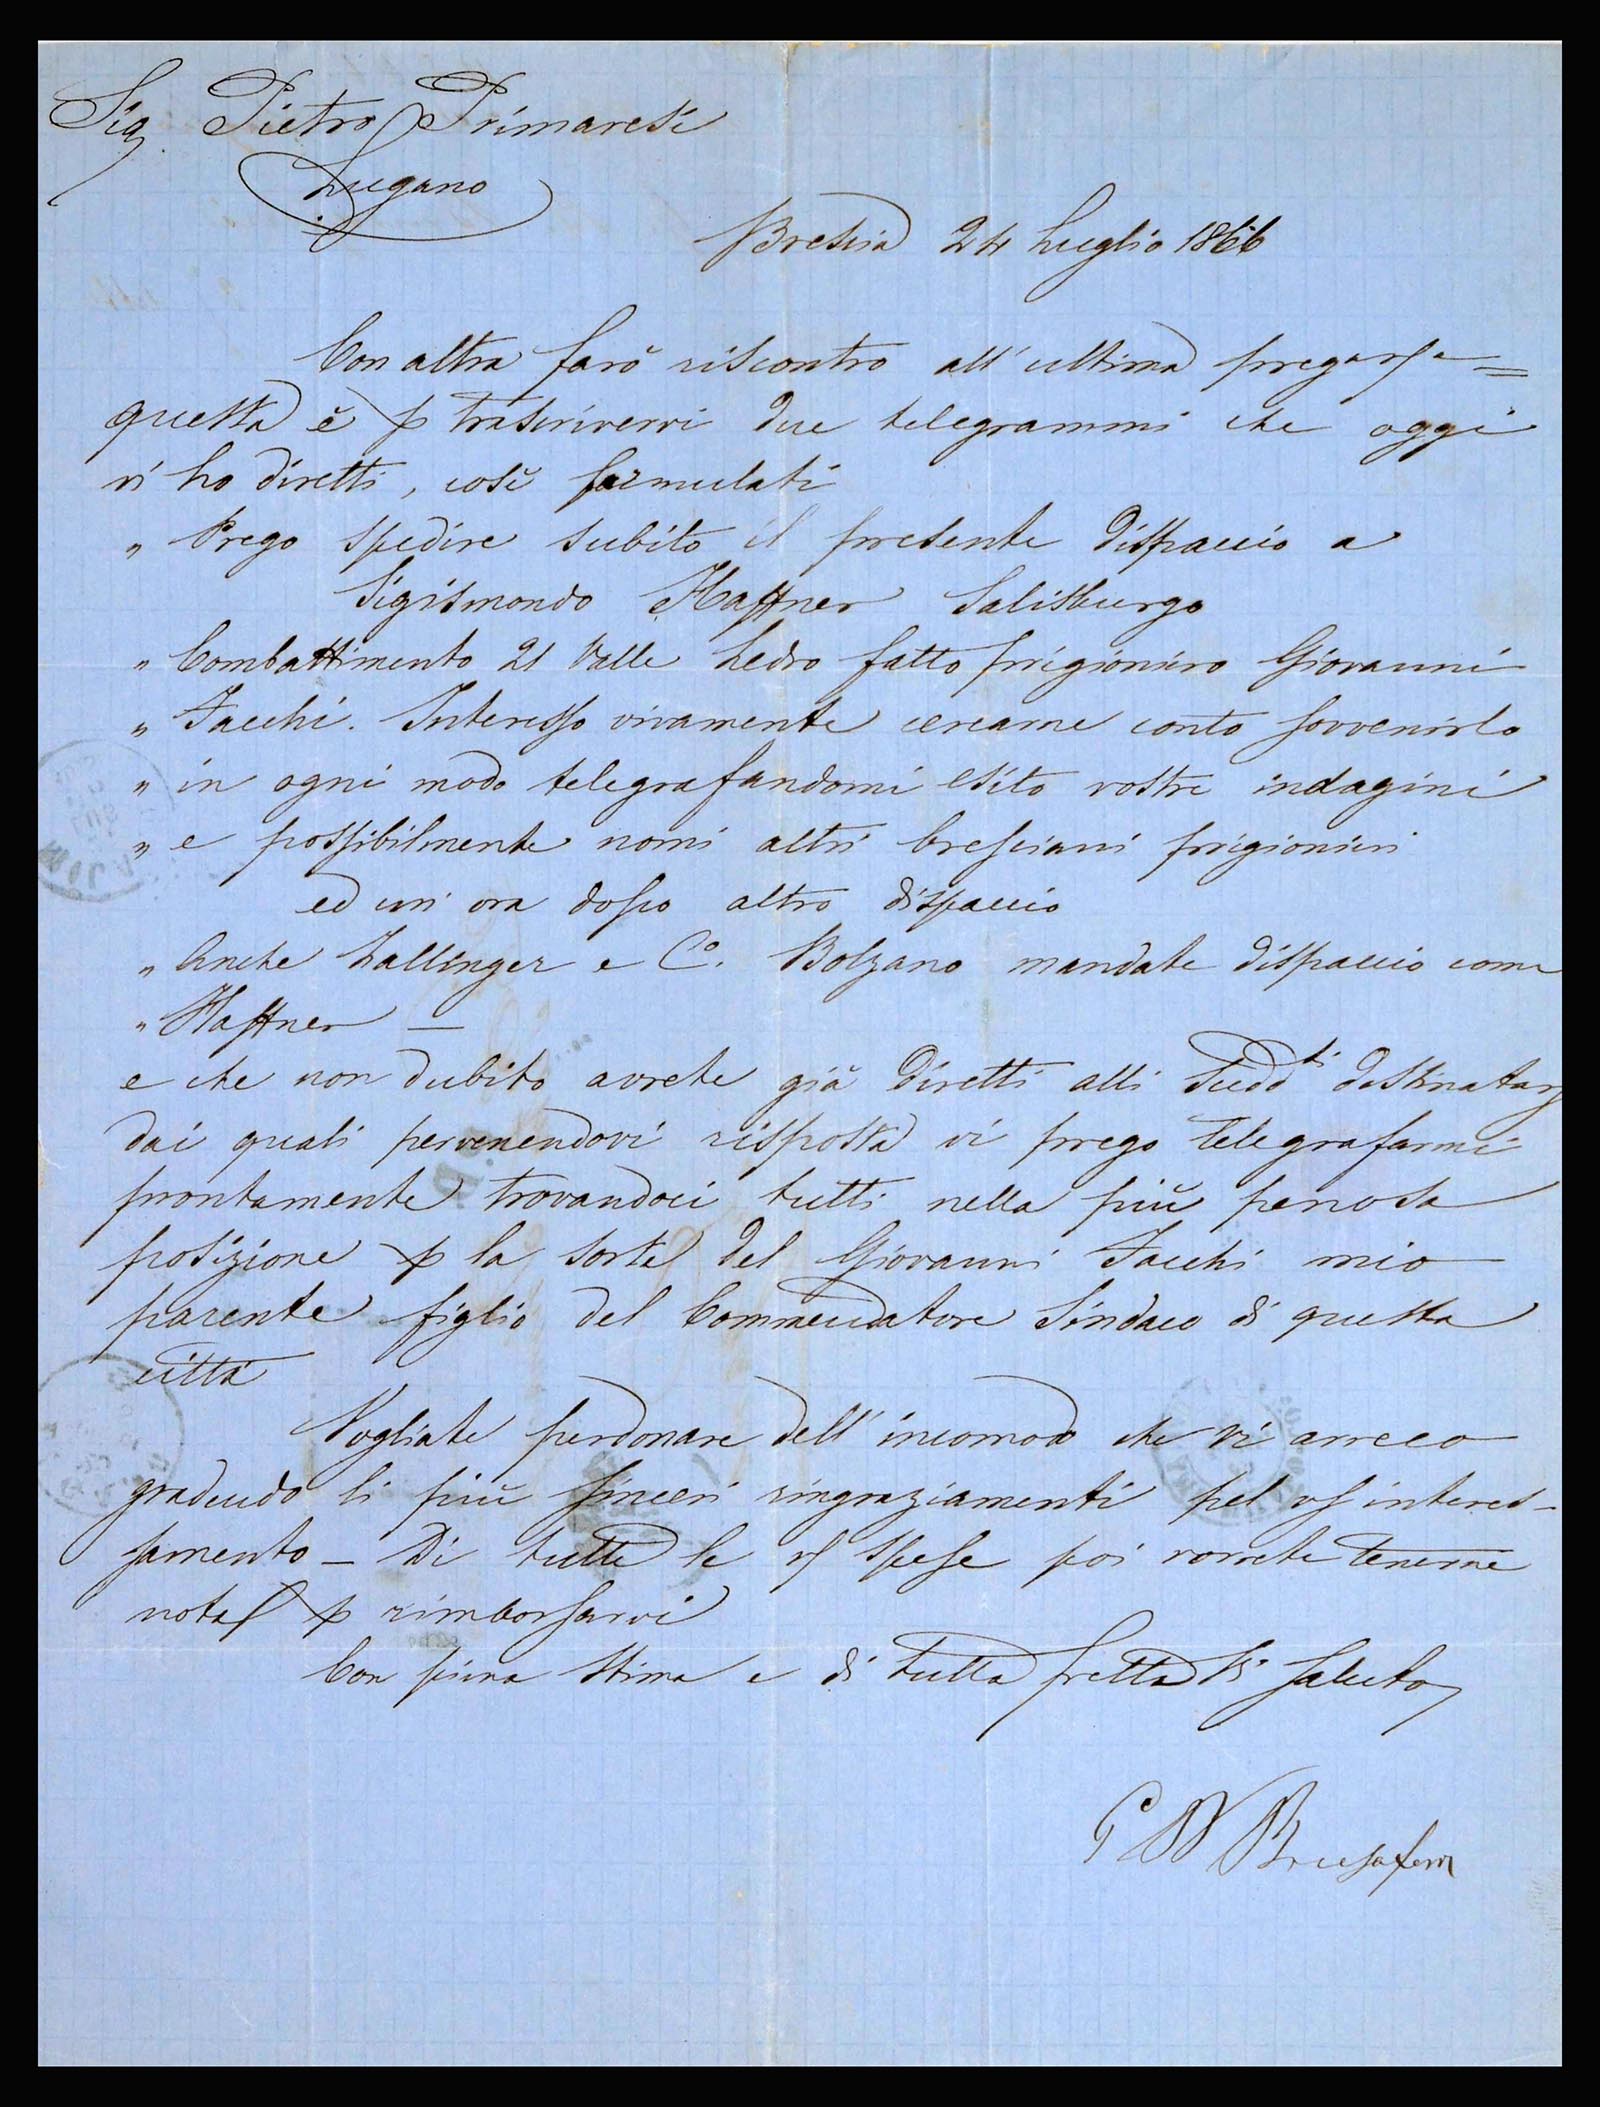 Sig. Pietro Primavesi
Lugano
Brescia 24 Luglio 1866
Con altra farò riscontro all'ultima
questa è p trascrivervi due telegrammi che oggi
vi ho diretti, così formulati
" Prego spedire subito il presente dispaccio a
Sigismondo Haffner Salisburgo
" Combattimento 21 Valle Ledro fatto prigioniero Giovanni
" Facchi. Interesso vivamente cercarne conto sovvenirlo
" in ogni modo telegrafandomi esito vostre indagini
" e possibilmente nomi altri bresciani prigionieri
ed un' ora dopo altro dispaccio
" Anche Zallinger e Co. Bolzano mandate dispaccio come
" Haffner —
e che non dubito avrete già diretti alli sudd.ti destinatarj
dai quali pervenendovi risposta vi prego telegrafarmi
prontamente trovandoci tutti nella più penosa
posizione p la sorte del Giovanni Facchi mio
parente figlio del Commendatore Sindaco di questa
città
Vogliate perdonare dell'incomodo che vi arreco
gradendo li più sinceri ringraziamenti pel vs interes-
samento — Di tutte le vs spese poi vorrete tenerne
nota p rimborsarvi
Con piena stima e di tutta fretta Vi saluto